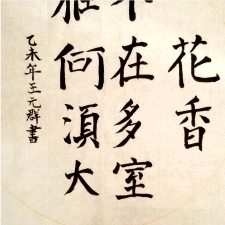 花香
不在多室
雅何湏大
乙未年王元群書